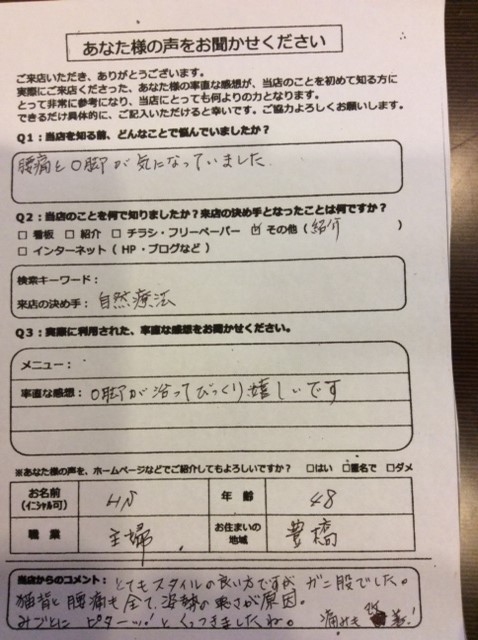 あなた様の声をお聞かせください
ご来店いただき、ありがとうございます。
実際にご来店くださった、あなた様の率直な感想が、当店のことを初めて知る方に
とって非常に参考になり、当店にとっても何よりの力となります。
できるだけ具体的に、ご記入いただけると幸いです。ご協力よろしくお願いします。
Q1：当店を知る前、どんなことで悩んでいましたか？
腰痛とO脚が気になっていました
Q2：当店のことを何で知りましたか？来店の決め手となったことは何ですか？
□ 看板 □ 紹介 □ チラシ・フリーペーパー ☑ その他（紹介 ）
□ インターネット（HP・ブログなど）
検索キーワード：
来店の決め手：自然療法
Q3：実際に利用された、率直な感想をお聞かせください。
メニュー：
率直な感想：O脚が治ってびっくり嬉しいです
※あなた様の声を、ホームページなどでご紹介してもよろしいですか？ □はい □匿名で □ダメ
お名前（イニシャル可） 年齢 48
職業 主婦 お住まいの地域 豊橋
当店からのコメント：とてもスタイルの良い方ですが ガニ股でした。
猫背と腰痛も全て、姿勢の悪さが原因。
みごとに ピターッ!と くっつきましたね。 痛みも